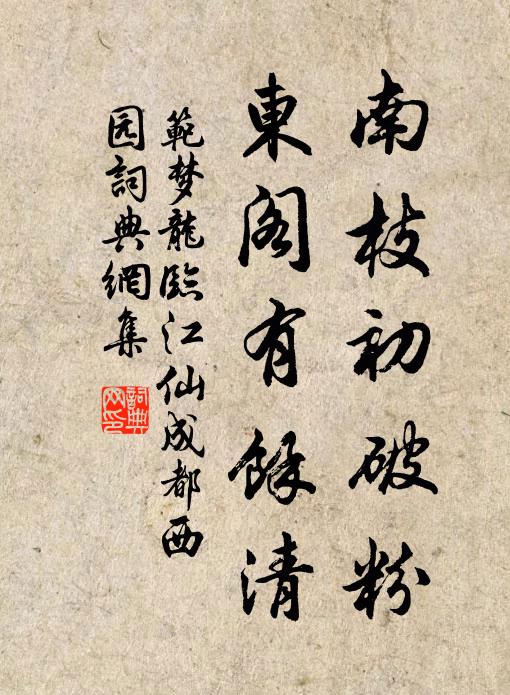 南枝初破粉
東阁有餘清
範梦龍臨江仙成都西
园詞典網集
詞典网印